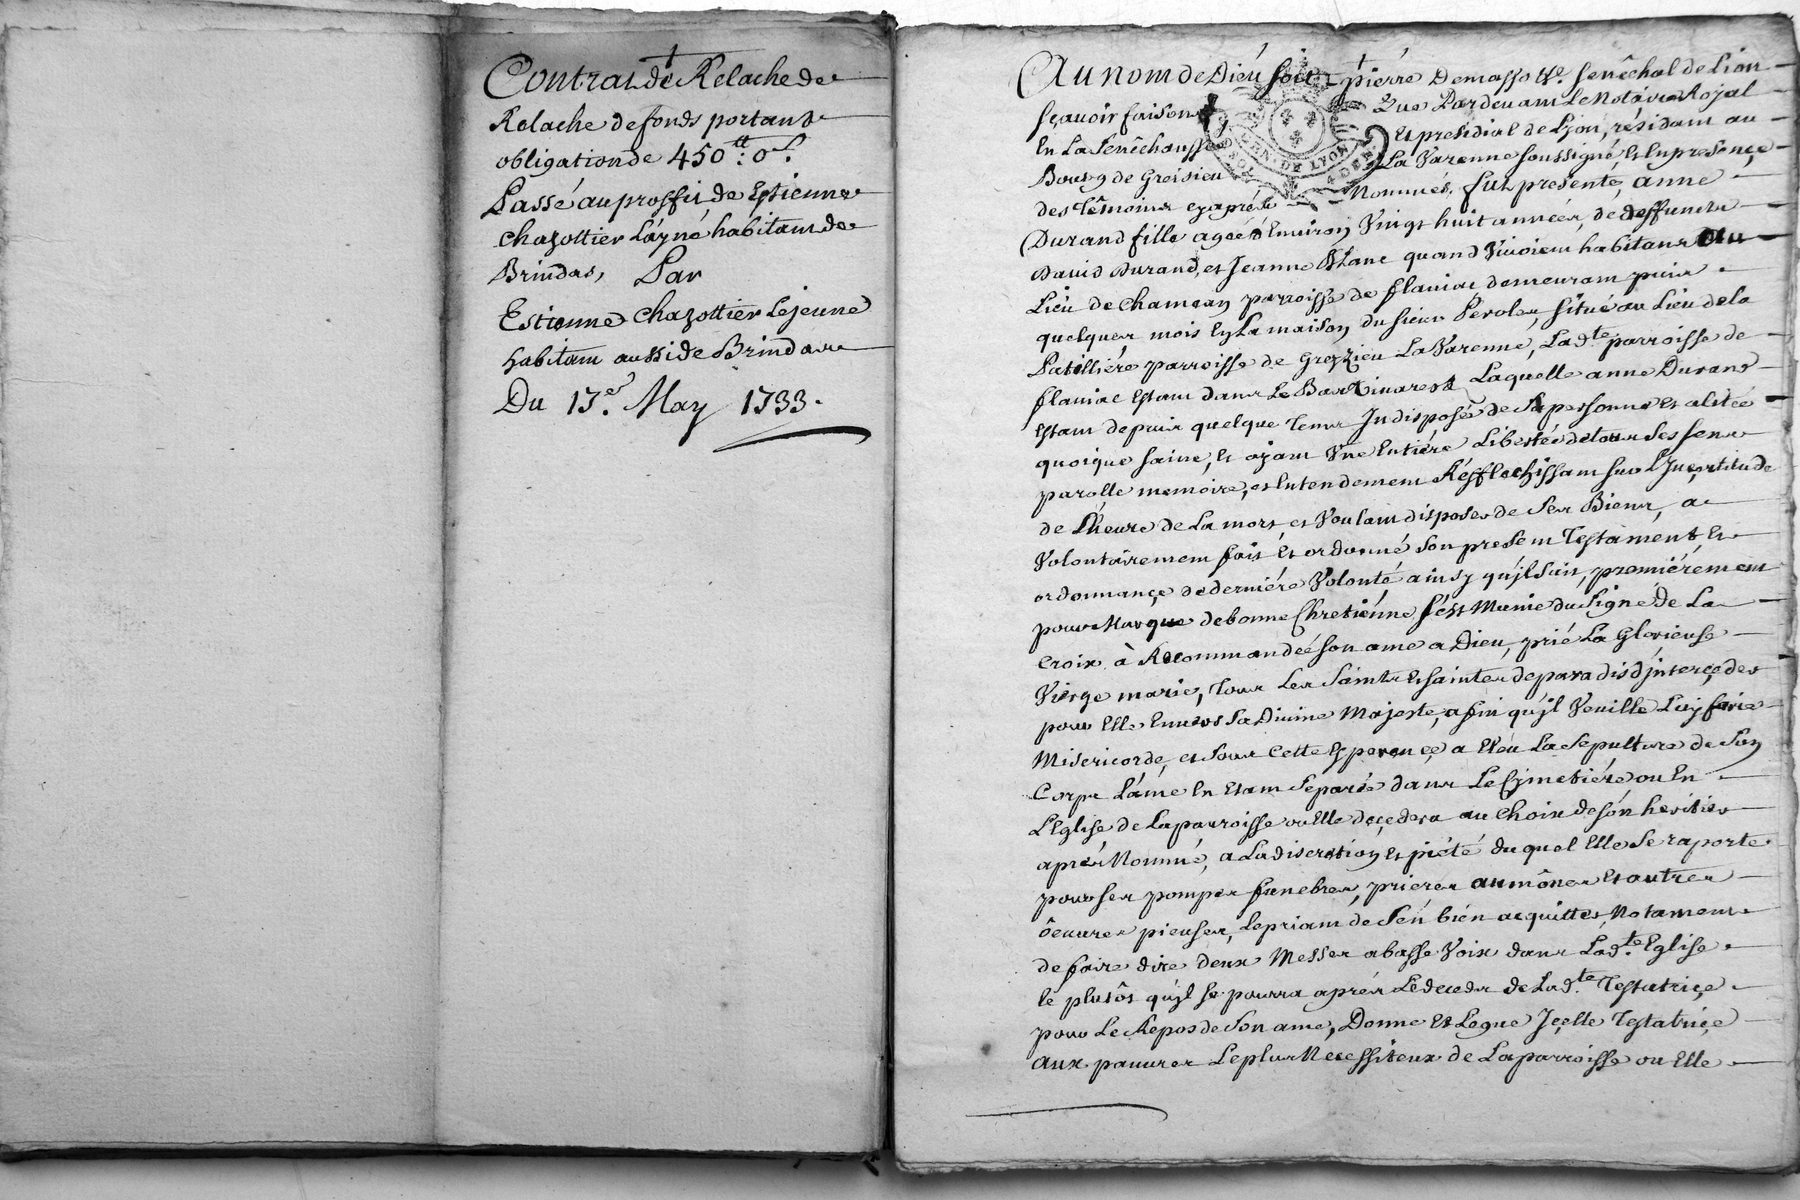 Contrat de Relache de
Relache de fonds portant
obligation de 450tt: 0s.
Passé au proffit de Estienne
chazottier L'ayné habitant de
Brindas, Par
Estienne chazottier Lejeune
habitant aussi de Brindas
Du 17e. May 1733.
Au nom de Dieu soit pierre Demasso Er. senêchal de Lion
sçavoir faisons Que Pardevant Le Notaire Royal
En La Senêchaussée Et presidial de Lyon, résidant au
Bourg de Greisieu La Varenne soussigné, Et En presençe
des têmoins cy aprés Nommés, fut presenté, anne
Durand fille ageé d'Environ Vingt huit années, de deffuncts
David Durand, et Jeanne Blanc quand Vivoient habitans Au
Lieu de chamean parroisse de flaviac demeurant puis
quelques mois En La maison du sieur Peroles, situé au Lieu de la
Patilliére parroisse de Grezzieu La Varenne, Lad.te parroisse de
flaviac Estant dans Le Bas Vivarest Laquelle anne Durand
Estant depuis quelque tems Indisposée de Sa personne et alitée
quoique saine, Et ayant Vne Entiére Liberté de tous Ses sens
parolle memoire, et Entendement Réfflechissant sur L'Inçertitude
de L'heure de La mort et Voulant disposer de Ses Biens, a
Volontairement fait Et ordonné Son present Testament Et
ordonnançe de derniére Volonté ainsy qu'jl suit, premiérement
pour Marque de bonne Chretiénne s'est Munie du Signe De La
Croix à Recommandée son ame a Dieu, prié La Glorieuse
Vierge marie, tous Les Saints Et saintes de paradis d'jnterçeder
pour Elle Envers Sa Divine Majesté, afin qu'jl Veuille Luy faire
Misericorde, et sous cette Esperançe a Eleu La Sepulture de Son
Corps L'ame En Etant Separée dans Le Cymetiére ou En
L'Eglise de La parroisse ou Elle deçedera au choix de son heritier
aprés Nommé, a La discretion Et piété du quel Elle Se raporte
pour ses pompes funebres, prieres aumônes Et autres
ôeuvres pieuses, Le priant de s'en bién acquitter, Notament
de faire dire deux Messes a basse Voix dans Lad.te Eglise
le plutôt qu'jl se pourra aprés Le deceds de Lad.te Testatriçe
pour Le Repos de Son ame, Donne Et Legue Jçelle Testatriçe
aux pauvres Le plus Necessiteux de La parroisse ou Elle